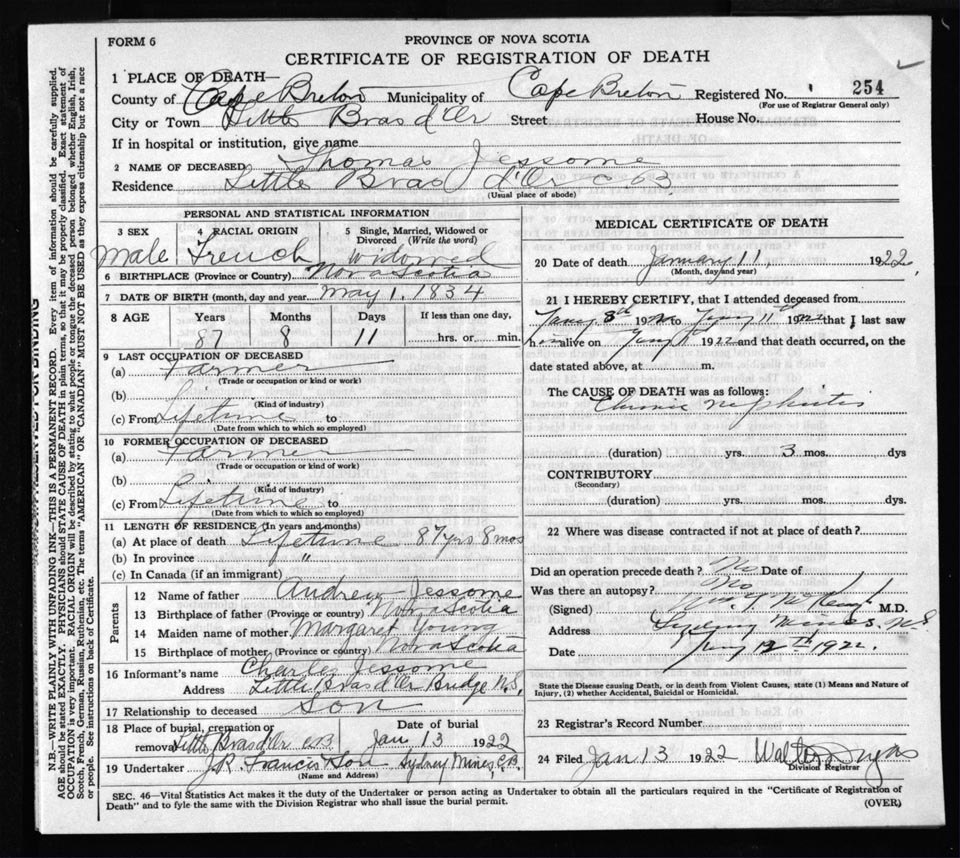 FORM 6
PROVINCE OF NOVA SCOTIA
CERTIFICATE OF REGISTRATION OF DEATH
1 PLACE OF DEATH—
County of Cape Breton Municipality of Cape Breton Registered No. 254
(For use of Registrar General only)
City or Town Little Bras d'Or Street House No.
If in hospital or institution, give name
2 NAME OF DECEASED Thomas Jessome
Residence Little Bras d'Or C.B.
(Usual place of abode)
PERSONAL AND STATISTICAL INFORMATION
3 SEX 4 RACIAL ORIGIN 5 Single, Married, Widowed or Divorced (Write the word)
male French widowed
6 BIRTHPLACE (Province or Country) Nova Scotia
7 DATE OF BIRTH (month, day and year May 1, 1834
8 AGE Years Months Days If less than one day,
87 8 11 hrs. or min.
9 LAST OCCUPATION OF DECEASED
(a) Farmer
(Trade or occupation or kind or work)
(b)
(Kind of industry)
(c) From Lifetime to
(Date from which to which so employed)
10 FORMER OCCUPATION OF DECEASED
(a) Farmer
(Trade or occupation or kind of work)
(b)
(Kind of industry)
(c) From Lifetime to
(Date from which to which so employed)
11 LENGTH OF RESIDENCE (In years and months)
(a) At place of death Lifetime 87 yrs 8 mos
(b) In province "
(c) In Canada (if an immigrant)
Parents
12 Name of father Andrew Jessome
13 Birthplace of father (Province or country) Nova Scotia
14 Maiden name of mother. Margaret Young
15 Birthplace of mother (Province or country) Nova Scotia
16 Informant's name Charles Jessome
Address Little Bras d'Or Bridge N.S.
17 Relationship to deceased Son
18 Place of burial, cremation or removal Little Bras d'Or C.B. Date of burial Jan 13 1922
19 Undertaker J.R. Francis Sydney Mines, C.B.
(Name and Address)
MEDICAL CERTIFICATE OF DEATH
20 Date of death January 11, 1922
(Month, day and year)
21 I HEREBY CERTIFY, that I attended deceased from
Jany 8th 1922 to Jany 11th 1922 that I last saw
h im alive on Jany 1922 and that death occurred, on the
date stated above, at m.
The CAUSE OF DEATH was as follows:
Chronic nephritis
(duration) yrs. 3 mos. dys
CONTRIBUTORY
(Secondary)
(duration) yrs. mos. dys.
22 Where was disease contracted if not at place of death?
Did an operation precede death? No Date of
Was there an autopsy? No
(Signed) M.D.
Address Sydney Mines. N.S
Date Jany 12th 1922.
State the Disease causing Death, or in death from Violent Causes, state (1) Means and Nature of Injury, (2) whether Accidental, Suicidal or Homicidal.
23 Registrar's Record Number
24 Filed Jan 13 1922 Walter
Division Registrar
SEC. 46—Vital Statistics Act makes it the duty of the Undertaker or person acting as Undertaker to obtain all the particulars required in the "Certificate of Registration of
Death" and to fyle the same with the Division Registrar who shall issue the burial permit. (OVER)
N.B.—WRITE PLAINLY WITH UNFADING INK—THIS IS A PERMANENT RECORD. Every item of information should be carefully supplied.
AGE should be stated EXACTLY. PHYSICIANS should STATE CAUSE OF DEATH in plain terms, so that it may be properly classified. Exact statement of
OCCUPATION is very important. RACIAL ORIGIN will be described by stating to what people or tongue the deceased person belonged whether English, Irish,
Scotch, French, German, Russian, Ruthenian, etc. The terms "AMERICAN" OR "CANADIAN" MUST NOT BE USED as they express citizenship but not a race
or people. See instructions on back of Certificate.